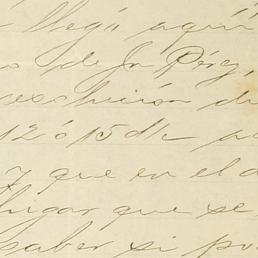 llegó aquí
de Jn Pérez,
12 ó 15 de
y que en el
lugar que se
saber si